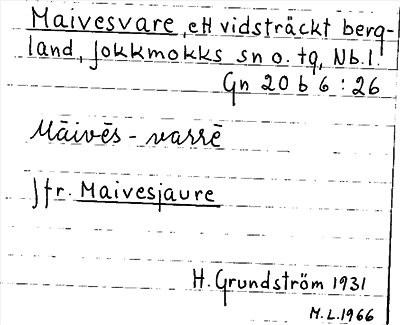 Maivesvare, ett vidsträckt berg-
land, Jokkmokks sn o. tg, Nb. l.
Gn 20 b 6 : 26
Māivēs - varrē
Jfr. Maivesjaure
H. Grundström 1931
M.L.1966